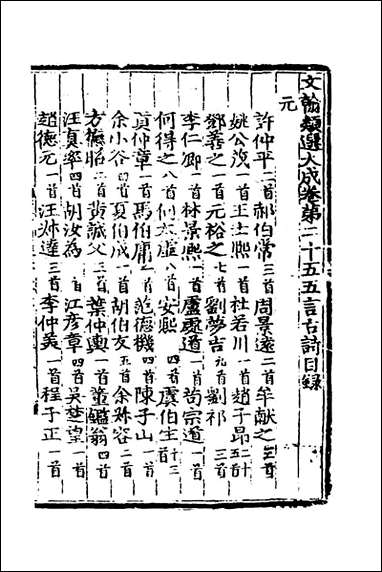 文翰類選大成卷第二十五五言古詩目錄
元
許仲平二首郝伯常三首周景遠二首牟献之三首
姚公茂一首王士熙一首杜若川一首趙子昂五首
鄧善之一首元裕之七首劉夢吉九首劉祁三首
李仁卿一首林景熙一首盧䟽道一首苟宗道一首
何得之八首何太虚八首安熙四首虞伯生十三首
袁仲章一首馬伯庸一首范德機四首陳子山一首
余小谷四首夏伯成一首胡伯友五首余姝容二首
方德昭二首黄誠父三首葉仲輿一首董鑑翁四首
汪真率四首胡汝為一首江彦章四首吴楚望一首
趙德元一首汪叔達三首李仲美一首程子正一首